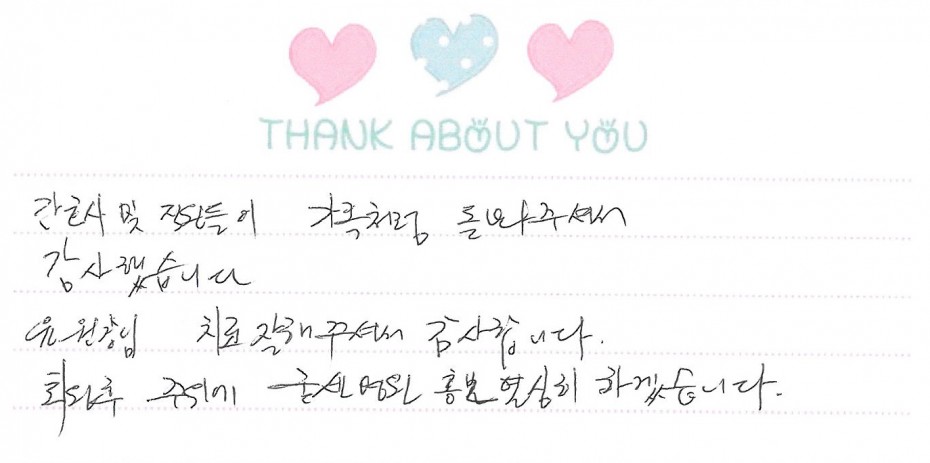 THANK ABOUT YOU
간호사 및 직원들이 가족처럼 돌봐주셔서
감사했습니다
유원장님 치료 잘해주셔서 감사합니다.
퇴원후 주위에 홍보 열심히 하겠습니다.